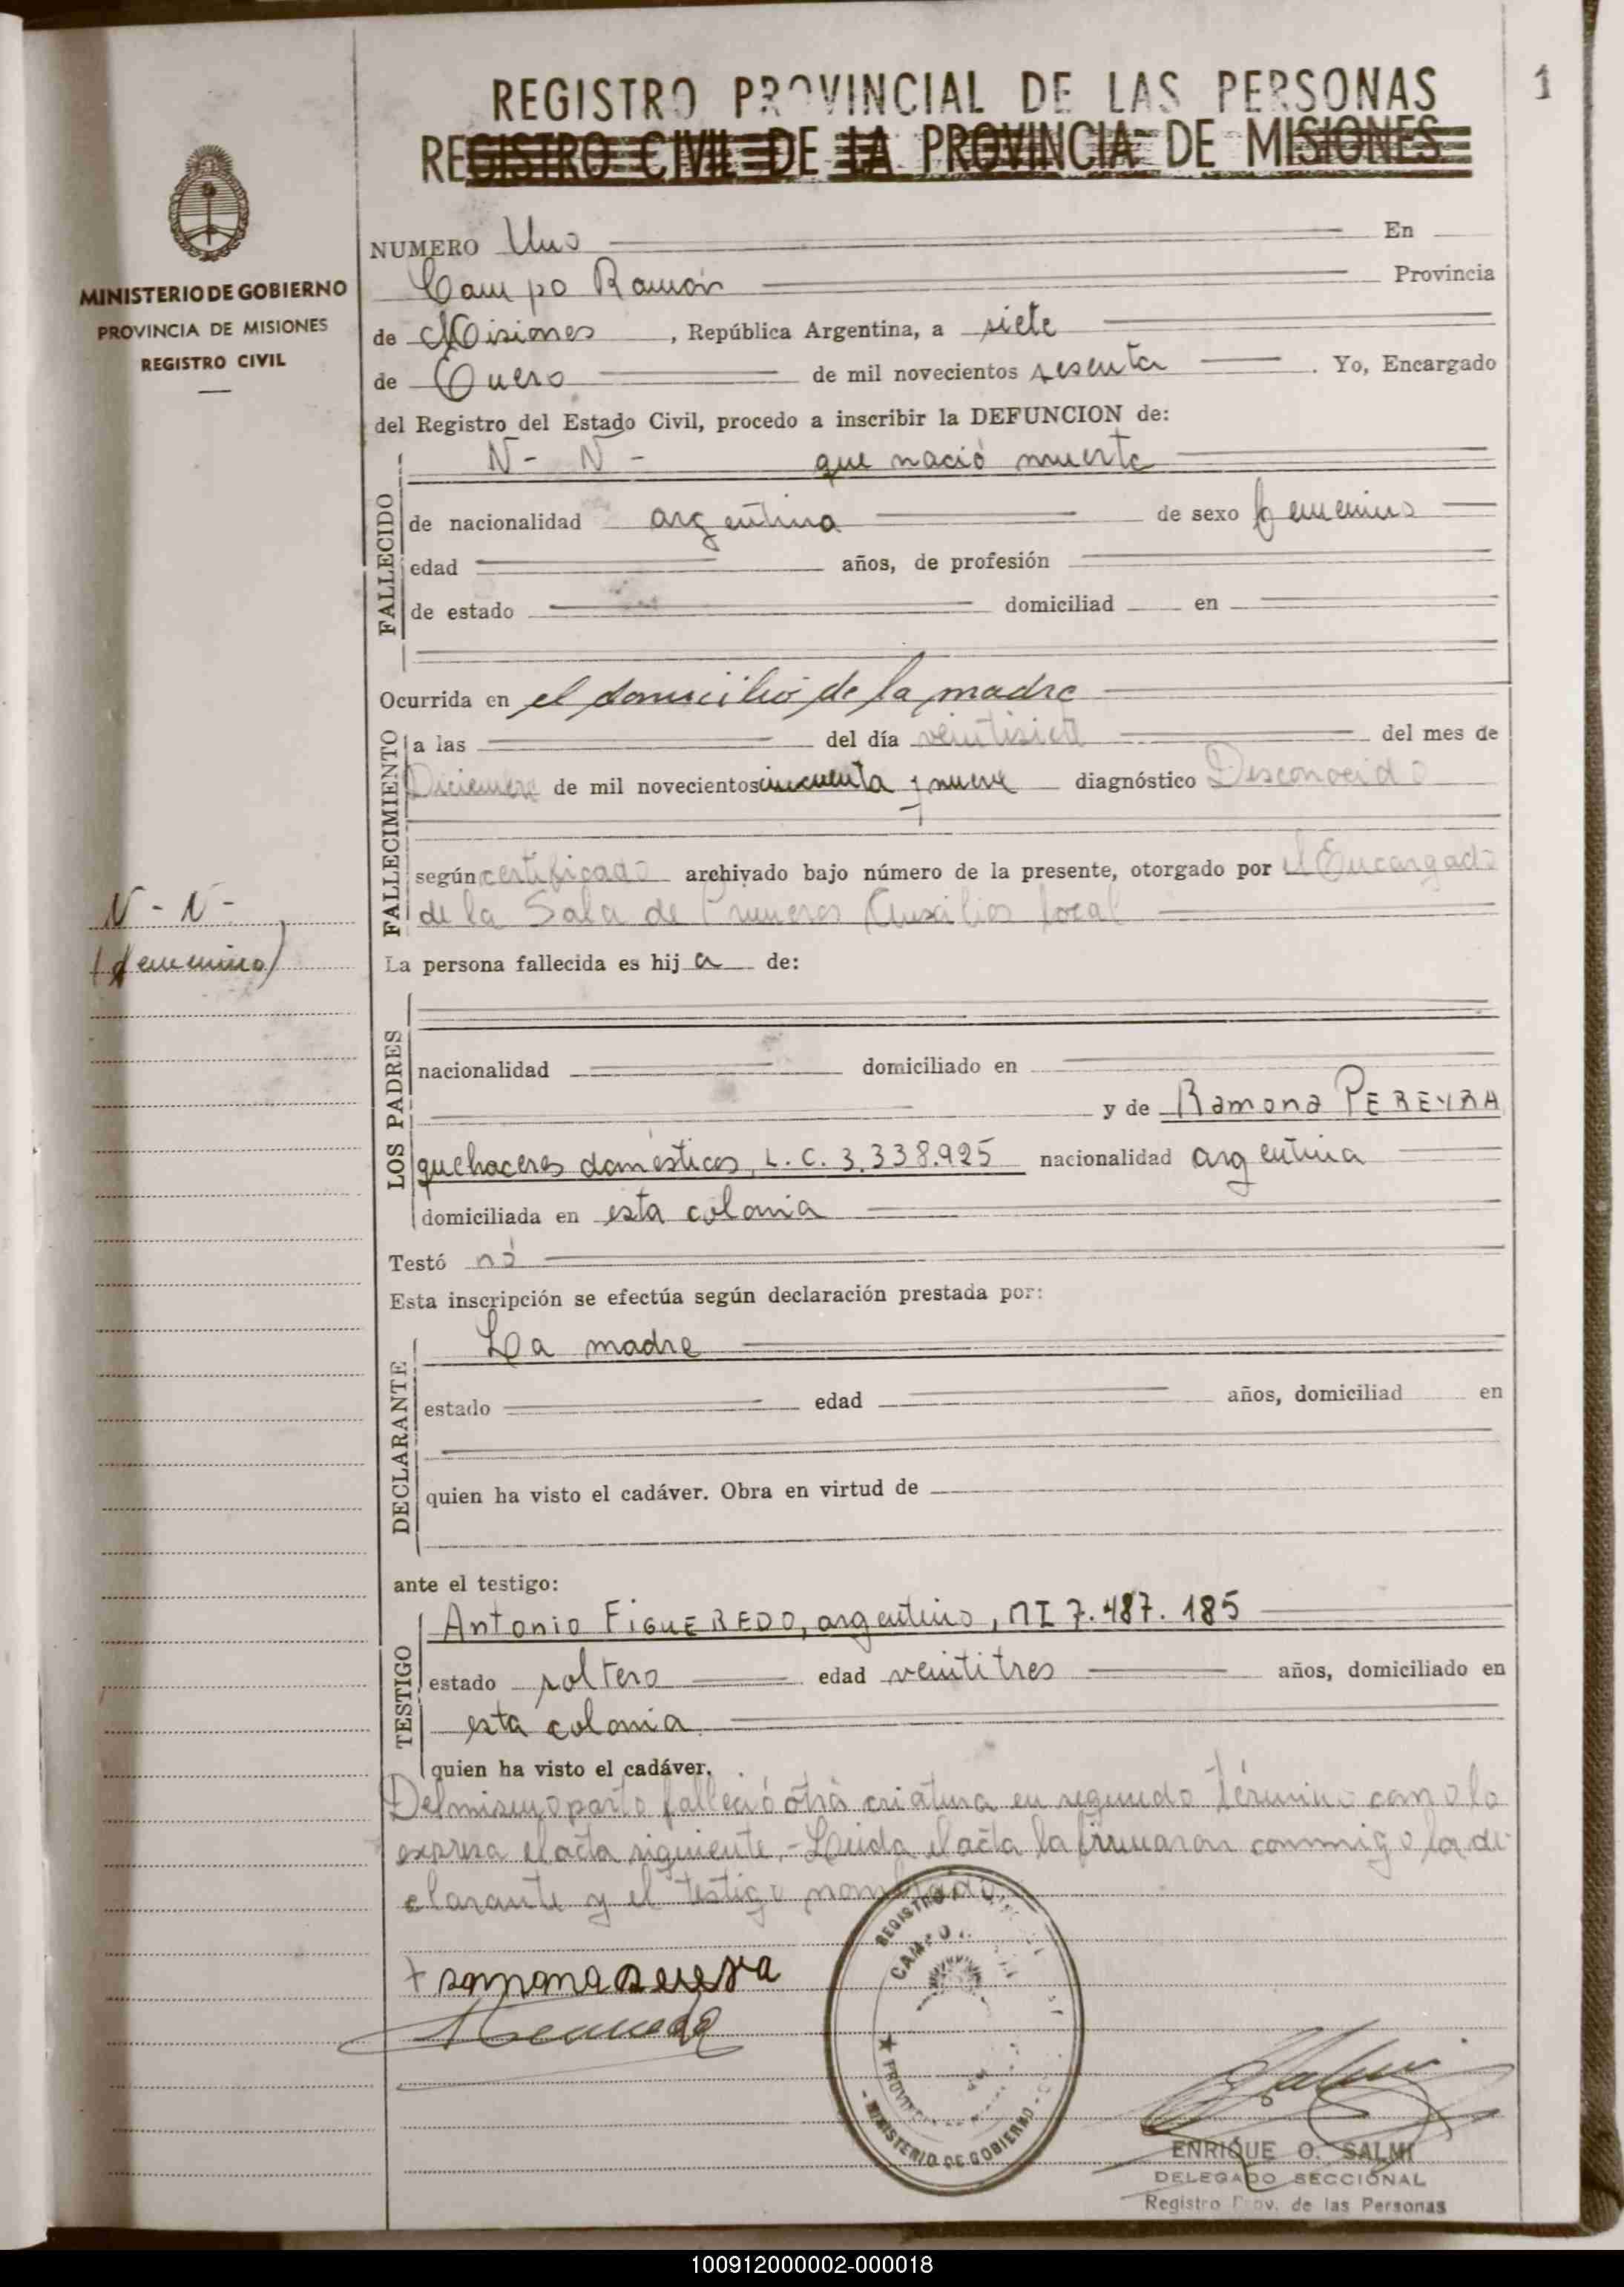 1
REGISTRO PROVINCIAL DE LAS PERSONAS
REGISTRO CIVIL DE LA PROVINCIA DE MISIONES
MINISTERIO DE GOBIERNO
PROVINCIA DE MISIONES
REGISTRO CIVIL
NUMERO Uno En
Campo Ramón Provincia
de Misiones , República Argentina, a siete
de Enero de mil novecientos sesenta . Yo, Encargado
del Registro del Estado Civil, procedo a inscribir la DEFUNCION de:
FALLECIDO
N- N- que nació muerta
de nacionalidad argentina de sexo femenino
edad años, de profesión
de estado domiciliad en
Ocurrida en el domicilio de la madre
FALLECIMIENTO
a las del día veintisiete del mes de
Diciembre de mil novecientos cincuenta y nueve diagnóstico Desconocido
según certificado archivado bajo número de la presente, otorgado por el Encargado
de la Sala de Primeros Auxilios local
N - N -
(femenino)
La persona fallecida es hij a de:
LOS PADRES
nacionalidad domiciliado en
y de Ramona PEREYRA
quehaceres domésticos, L. C. 3.338.925 nacionalidad argentina
domiciliada en esta colonia
Testó nó
Esta inscripción se efectúa según declaración prestada por:
DECLARANTE
La madre
estado edad años, domiciliad en
quien ha visto el cadáver. Obra en virtud de
ante el testigo:
TESTIGO
Antonio FIGUEREDO, argentino, MI 7.487.185
estado soltero edad veintitres años, domiciliado en
esta colonia
quien ha visto el cadáver.
Del mismo parto falleció otra criatura en segundo término como lo
expresa el acta siguiente.- Leída el acta la firmaron conmigo la de-
clarante y el testigo nombrado.
+ ramona
REGISTRO
CAMPO
MINISTERIO DE GOBIERNO
ENRIQUE O. SALMI
DELEGADO SECCIONAL
Registro Prov. de las Personas
100912000002-000018